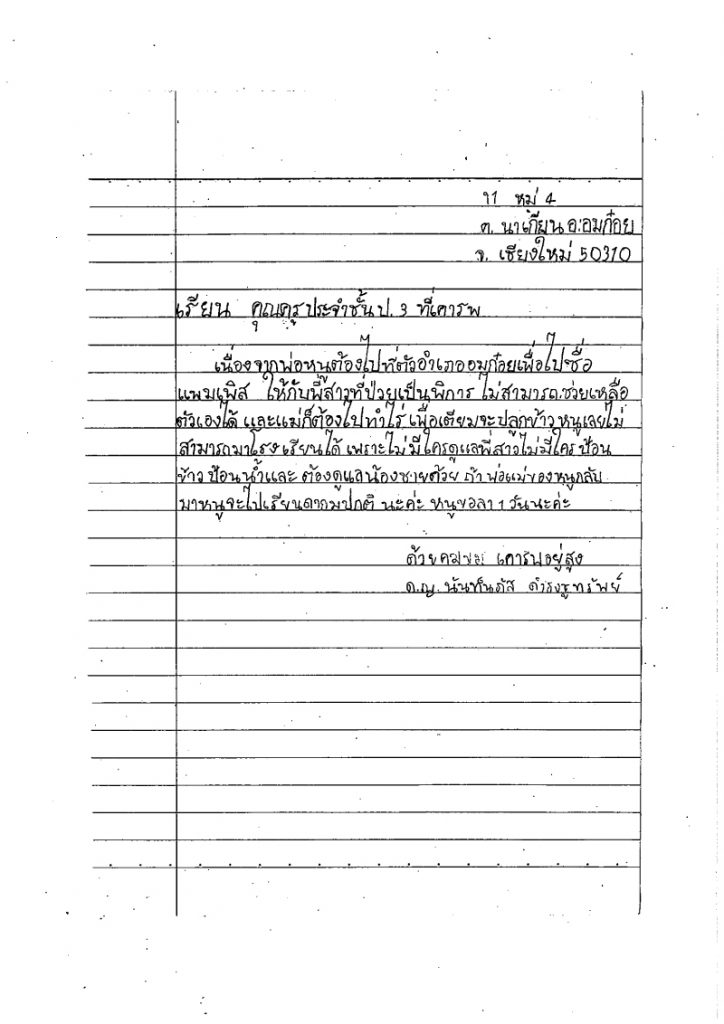 11 หมู่ 4
ต. นาเกียน อ.อมก๋อย
จ. เชียงใหม่ 50310
เรียน คุณครูประจำชั้น ป. 3 ที่เคารพ
เนื่องจากพ่อหนูต้องไปที่ตัวอำเภออมก๋อยเพื่อไปซื้อ
แพมเพิส ให้กับพี่สาวที่ป่วยเป็นพิการ ไม่สามารถช่วยเหลือ
ตัวเองได้ และแม่ก็ต้องไปทำไร่ เพื่อเตียมจะปลูกข้าว หนูเลยไม่
สามารถมาโรงเรียนได้ เพราะไม่มีใครดูแลพี่สาวไม่มีใครป้อน
ข้าว ป้อนน้ำและ ต้องดูแลน้องชายด้วย ถ้า พ่อแม่ของหนูกลับ
มาหนูจะไปเรียนตามปกติ นะค่ะ หนูขอลา 1 วันนะค่ะ
เคารพอยู่สูง
ด.ญ.